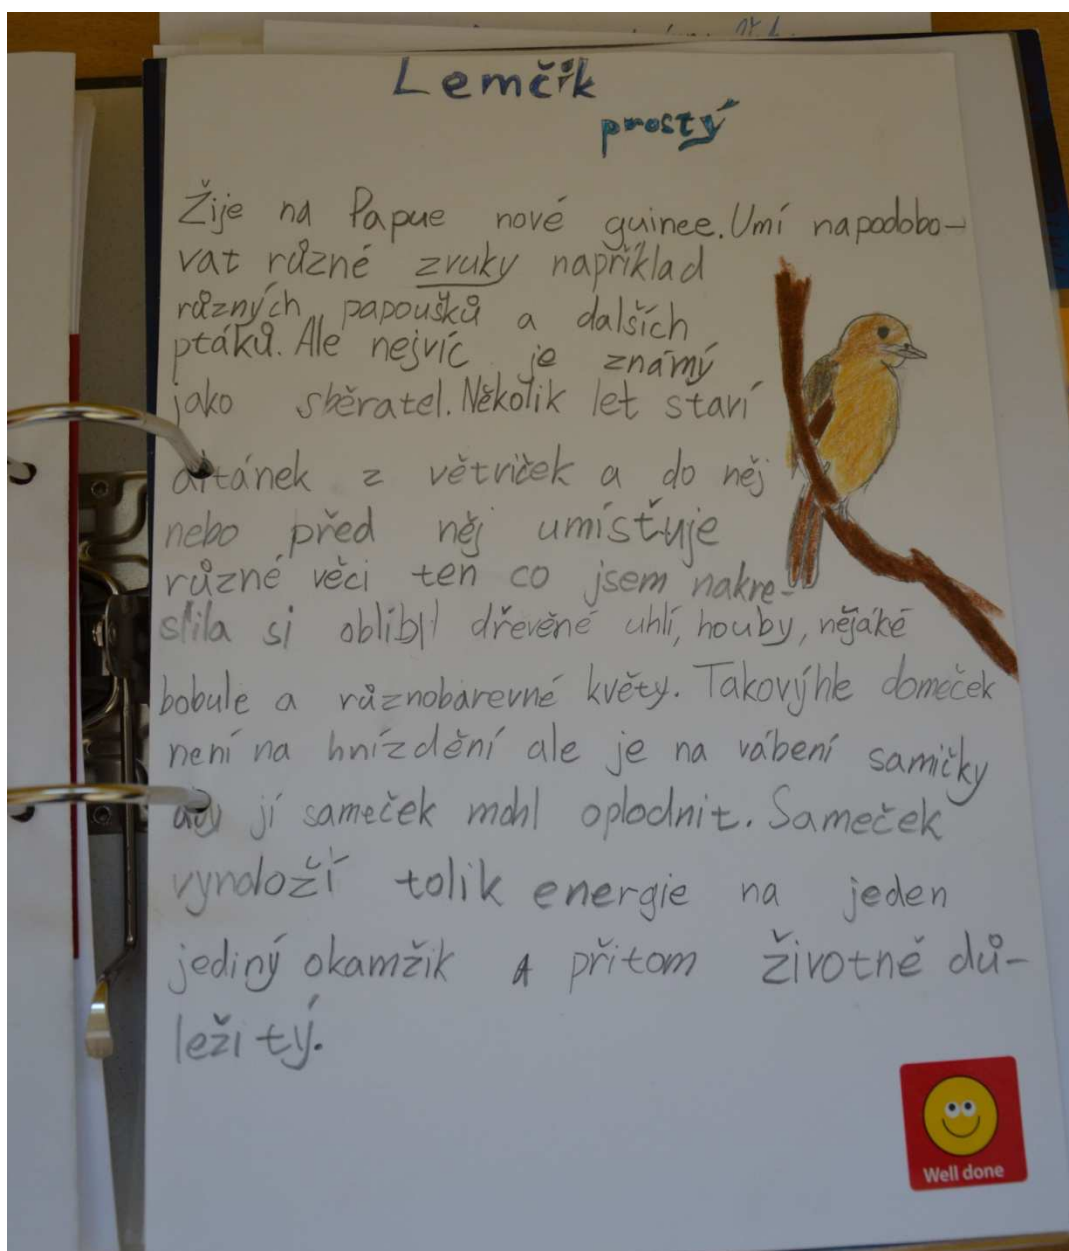 Lemčík
prostý
Žije na Papue nové guinee. Umí napodobo-
vat různé zvuky například
různých papoušků a dalších
ptáků. Ale nejvíc je známý
jako sběratel. Několik let staví
altánek z větviček a do něj
nebo před něj umísťuje
různé věci ten co jsem nakre-
slila si oblíbil dřevěné uhlí, houby, nějáké
bobule a různobarevné květy. Takovýhle domeček
není na hnízdění ale je na vábení samičky
aby jí sameček mohl oplodnit. Sameček
vynaloží tolik energie na jeden
jediný okamžik a přitom životně dů-
ležitý.
Well done